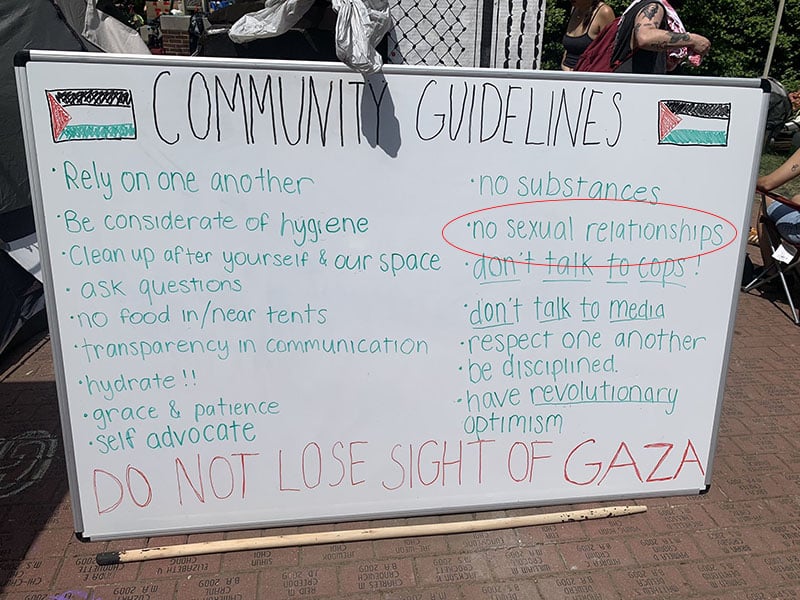 COMMUNITY GUIDELINES
·Rely on one another
·Be considerate of hygiene
·Clean up after yourself & our space
·ask questions
·no food in/near tents
·transparency in communication
·hydrate!!
·grace & patience
·self advocate
·no substances
·no sexual relationships
·don't talk to cops!
·don't talk to media
·respect one another
·be disciplined.
·have revolutionary
optimism
DO NOT LOSE SIGHT OF GAZA